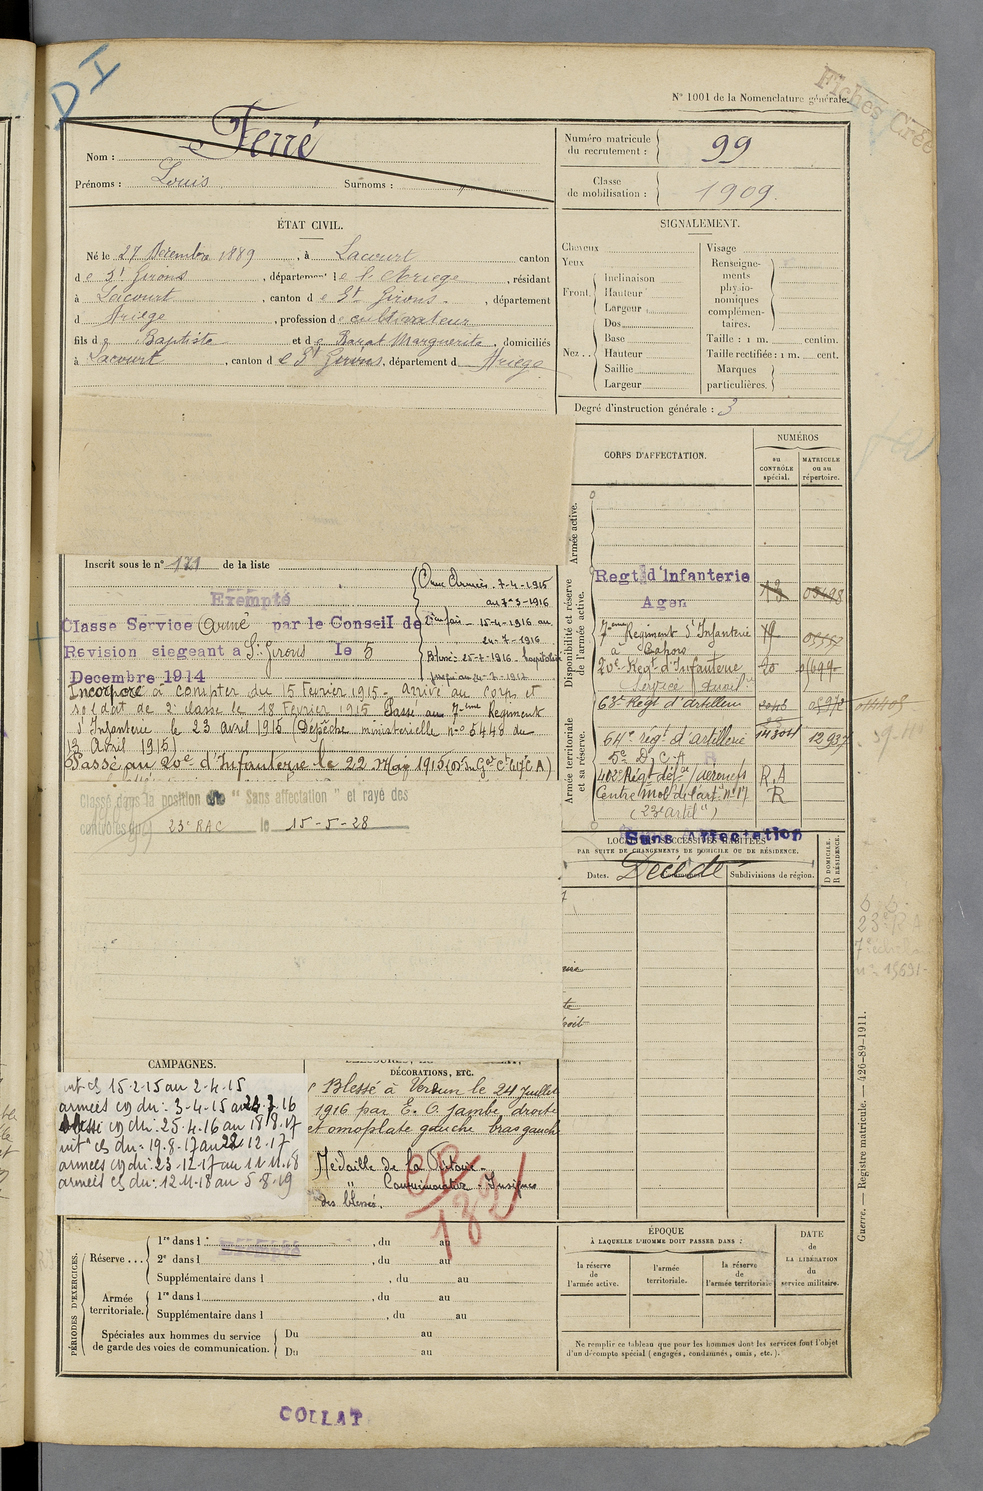 DI
N° 1001 de la Nomenclature générale.
Fiches Créé
Nom : Ferré
Prénoms : Louis Surnoms :
Numéro matricule du recrutement : 99
Classe de mobilisation : 1909.
ÉTAT CIVIL.
Né le 27 Décembre 1889, à Lacourt canton
de St Girons, département de l'Ariège, résidant
à Lacourt, canton de St Girons, département
d Ariège, profession de cultivateur
fils de Baptiste et de Marguerite, domiciliés
à Lacourt, canton de St Girons, département d Ariège
SIGNALEMENT.
Cheveux
Yeux
Front.
Inclinaison
Hauteur
Largeur
Nez...
Dos
Base
Hauteur
Saillie
Largeur
Visage
Renseigne-
ments
physio-
nomiques
complémen-
taires.
Taille : 1 m. centim.
Taille rectifiée : 1 m. cent.
Marques
particulières.
Degré d'instruction générale : 3
Inscrit sous le n° 121 de la liste
Exempté
Classe Service Armé par le Conseil de
Révision siegeant a St Girons le 5
Decembre 1914
Aux Armées - 7-4-1915
au 7-3-1916
15-4-1916 au
24-7-1916
Blessé - 25-7-1916
Incorporé à compter du 15 Février 1915 - arrivé au corps et
soldat de 2e classe le 18 Février 1915 Passé au 7ème Régiment
d'Infanterie le 23 avril 1915 (Dépêche ministérielle n° 5448 du
13 Avril 1915)
Passé au 20e d'Infanterie le 22 May 1916
Classé dans la position de " Sans affectation " et rayé des
contrôles du 23e RAC le 15-5-28
CORPS D'AFFECTATION.
NUMÉROS
au CONTRÔLE spécial.
MATRICULE ou au répertoire.
Armée active.
Disponibilité et réserve de l'armée active.
Armée territoriale et sa réserve.
Regt d'Infanterie
Agen 18
7eme Régiment d'Infanterie
à Cahors
20e Regt d'Infanterie 20
68e Régt d'Artillerie
64e régt d'artillerie 12937
5e D.C.A R
402e Régt déf. aériennes R.A
Centre mob. de l'art. n° 17 R
(23e artil.)
Sans Affectation
LOCALITÉS SUCCESSIVES HABITÉES
PAR SUITE DE CHANGEMENTS DE DOMICILE OU DE RÉSIDENCE.
Dates. Décédé Subdivisions de région.
D DOMICILE. R RÉSIDENCE.
CAMPAGNES.
int cs 15-2-15 au 2-4-15
armées cd du : 3-4-15 au 24-7-16
blessé cd du : 25-4-16 au 18-8-17
int cs du : 19-8-17 au 22-12-17
armées cd du : 23-12-17 au 11-11-18
armées cs du : 12-11-18 au 5-8-19
DÉCORATIONS, ETC.
Blessé à Verdun le 24 Juillet
1916 par E. O. jambe droite
et omoplate gauche bras gauche
Médaille de la Victoire -
" Commémorative - Insignes
des blessés.
CR
132
PÉRIODES D'EXERCICES.
Réserve... 1re dans l Exempté, du au
2e dans l , du au
Supplémentaire dans l , du au
Armée territoriale. 1re dans l , du au
Supplémentaire dans l , du au
Spéciales aux hommes du service
de garde des voies de communication.
Du au
Du au
ÉPOQUE
À LAQUELLE L'HOMME DOIT PASSER DANS :
la réserve de l'armée active.
l'armée territoriale.
la réserve de l'armée territoriale
DATE de LA LIBÉRATION du service militaire.
Ne remplir ce tableau que pour les hommes dont les services font l'objet
d'un décompte spécial (engagés, condamnés, omis, etc.).
Guerre. — Registre matricule. — 426-89-1911.
COLLAT